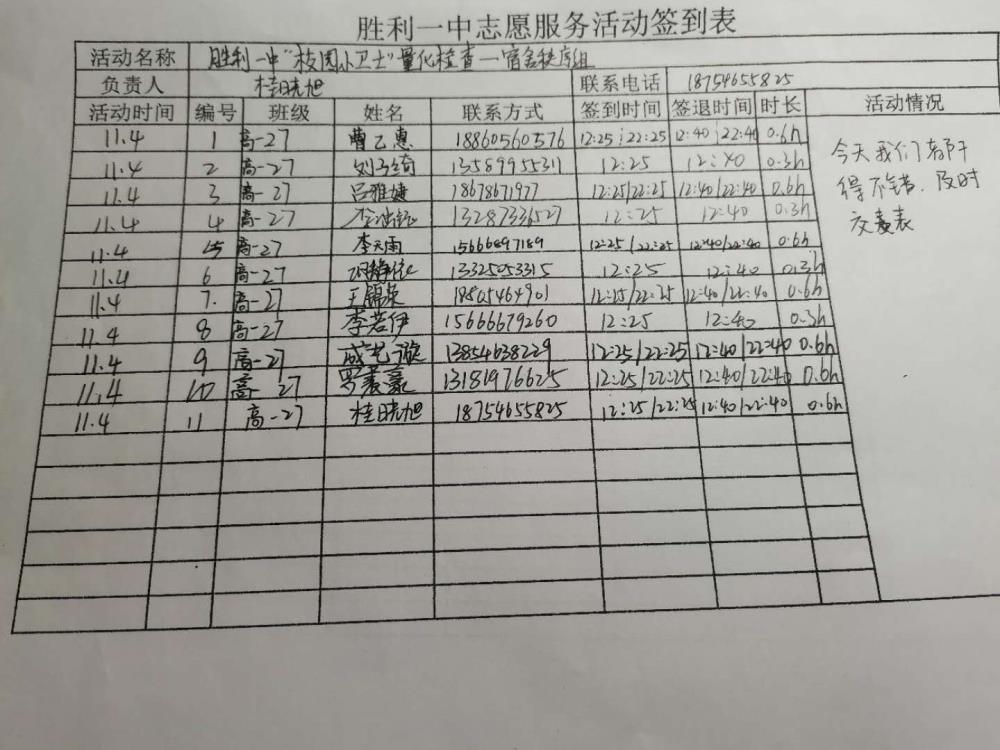 胜利一中志愿服务活动签到表
活动名称 胜利一中"校园小卫士"量化检查一宿舍秩序组
负责人 桂晓旭 联系电话 18754655825
活动时间 编号 班级 姓名 联系方式 签到时间 签退时间 时长 活动情况
11.4 1 高一27 曹乙惠 18860560576 12:25 22:25 12:40 22:40 0.6h
11.4 2 高一27 刘子绮 13589955311 12:25 12:40 0.3h
11.4 3 高一27 吕雅婕 18678671977 12:25/22:25 12:40/22:40 0.6h
11.4 4 高一27 13287336527 12:25 12:40 0.3h
11.4 5 高一27 李天雨 15666897189 12:25/22:25 12:40/22:40 0.6h
11.4 6 高一27 13325053315 12:25 12:40 0.3h
11.4 7. 高一27 12:25/22:25 12:40/22:40 0.6h
11.4 8 高一27 李若伊 15666679260 12:25 12:40 0.3h
11.4 9 高一27 成艺漩 13854638229 12:25/22:25 12:40/22:40 0.6h
11.4 10 高一27 13181976625 12:25/22:25 12:40/22:40 0.6h
11.4 11 高一27 桂晓旭 18754655825 12:25/22:25 12:40/22:40 0.6h
今天我们都干
得不错,及时
交表